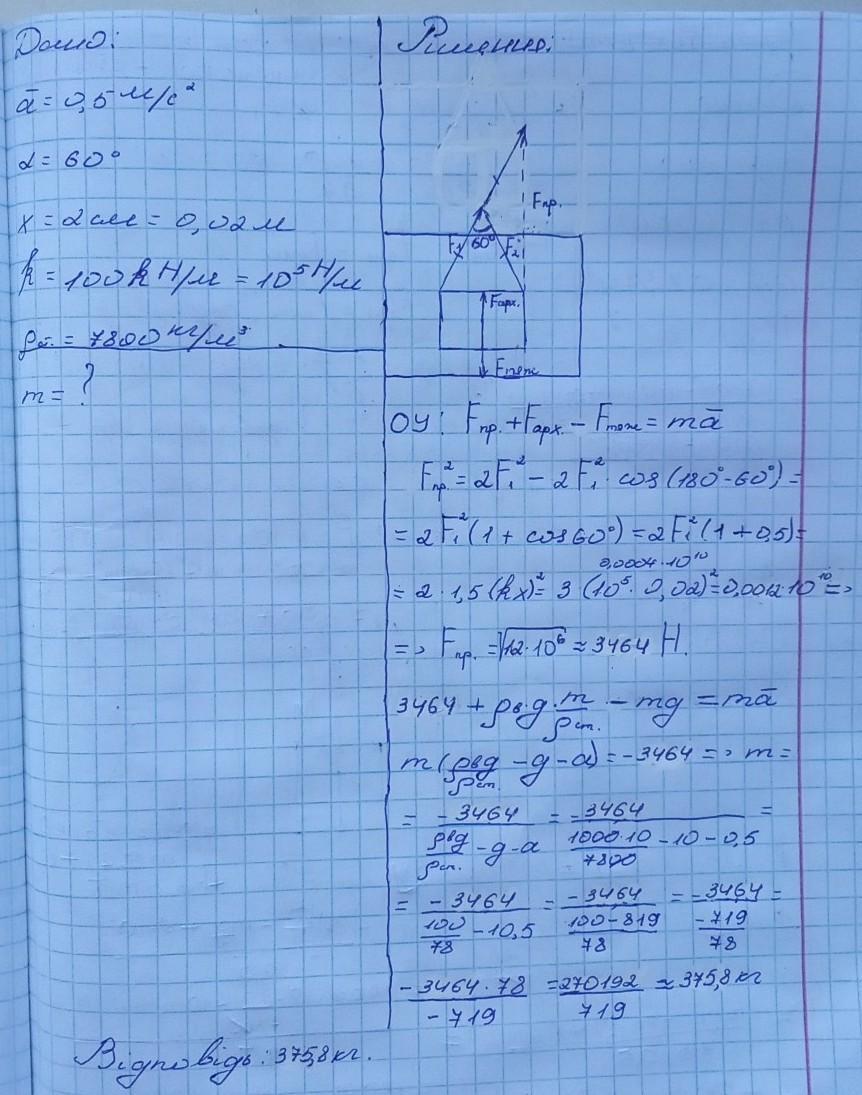 Дано:
a̅ = 0,5 м/с²
α = 60°
x = 2 см = 0,02 м
k = 100 кН/м = 10⁵ Н/м
ρст. = 7800 кг/м³
m = ?
Рішення:
Fпр.
F₁ 60° F₂
Fарх.
Fтяж
ОУ: Fпр. + Fарх. − Fтяж = ma̅
Fпр.² = 2F₁² − 2F₁² · cos(180° − 60°) =
= 2F₁²(1 + cos60°) = 2F₁²(1 + 0,5) =
0,0004·10¹⁰
= 2 · 1,5(kx)² = 3(10⁵ · 0,02)² = 0,0012·10¹⁰ =>
=> Fпр. = √12·10⁶ ≈ 3464 Н.
3464 + ρв·g·m/ρст. − mg = ma̅
m(ρвg/ρст. − g − a) = −3464 => m =
= −3464/(ρвg/ρст. − g − a) = −3464/(1000·10/7800 − 10 − 0,5) =
= −3464/(100/78 − 10,5) = −3464/((100−819)/78) = −3464/(−719/78) =
−3464·78/−719 = 270192/719 ≈ 375,8 кг
Відповідь: 375,8 кг.